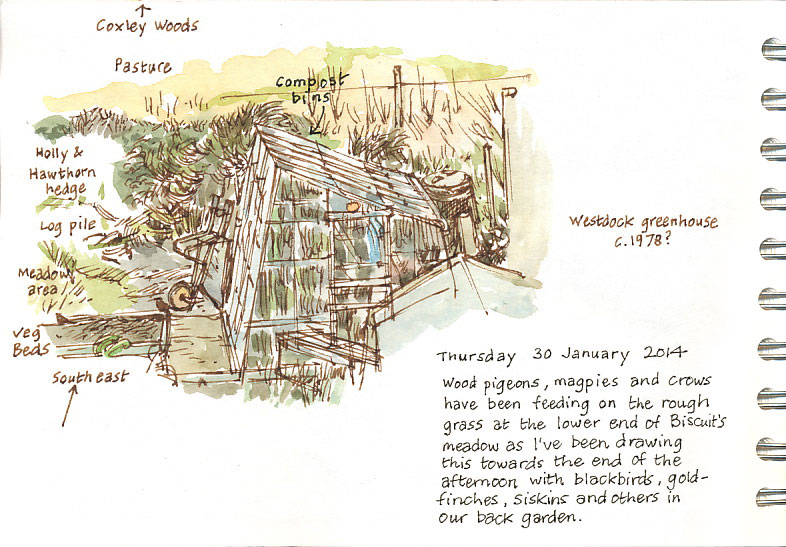 Coxley Woods
Pasture
compost
bins
Holly &
Hawthorn
hedge
Log pile
Meadow
area
Veg
Beds
South east
Westdock greenhouse
c.1978?
Thursday 30 January 2014
Wood pigeons, magpies and crows
have been feeding on the rough
grass at the lower end of Biscuit's
meadow as I've been drawing
this towards the end of the
afternoon with blackbirds, gold-
finches, siskins and others in
our back garden.